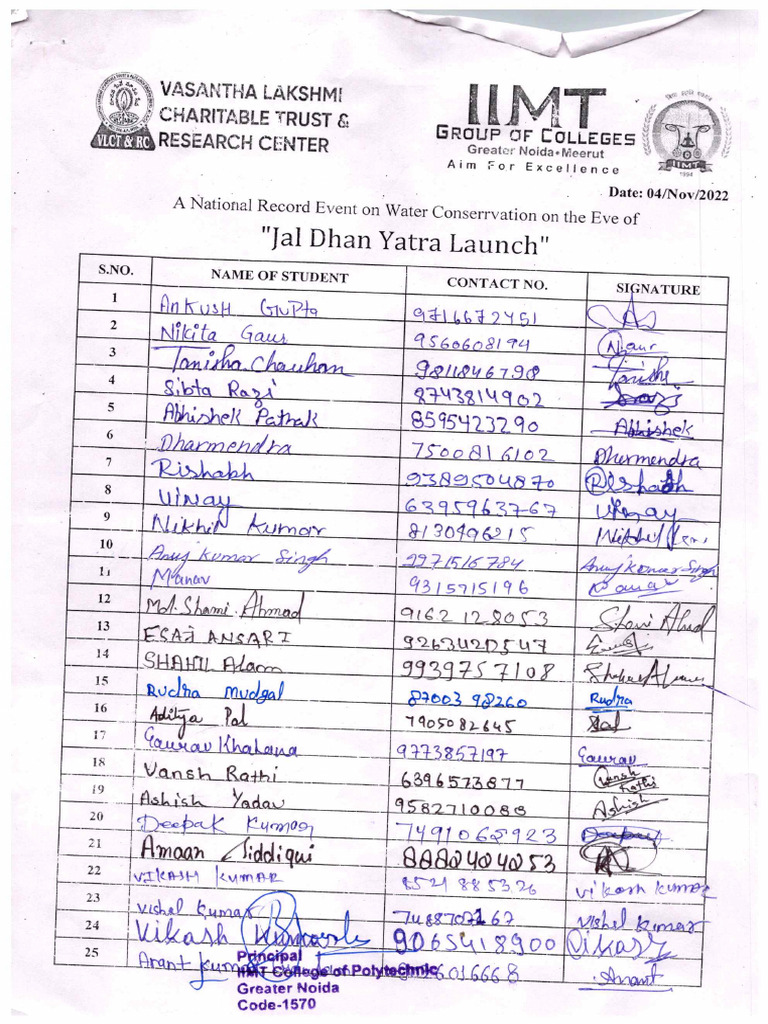 VASANTHA LAKSHMI
CHARITABLE TRUST &
RESEARCH CENTER
VLCT & RC
IIMT
GROUP OF COLLEGES
Greater Noida•Meerut
Aim For Excellence
IIMT
1994
Date: 04/Nov/2022
A National Record Event on Water Conserrvation on the Eve of
"Jal Dhan Yatra Launch"
S.NO. NAME OF STUDENT CONTACT NO. SIGNATURE
1 Ankush Gupta 9716672451
2 Nikita Gaur 9560608194
3 Tanisha Chauhan 9811846798 Tanisha
4 Sibta Razi 8743814902
5 Abhishek Pathak 8595423290 Abhishek
6 Dharmendra 7500816102 Dharmendra
7 Rishabh 9389504870 Rishabh
8 Vinay 6395963767 Vinay
9 Nikhil Kumar 8130496215
10 Anuj Kumar Singh 9971516784 Anuj Kumar Singh
11 Manav 9315715196
12 Md. Shami Ahmad 9162128053
13 ESAJ ANSARI
14 SHAHIL Alam 9939757108
15 Rudra Mudgal 8700398260 Rudra
16 Aditya Pal 7905082645
17 Gaurav Khatana 9773857197 Gaurav
18 Vansh Rathi 6396573877 Vansh Rathi
19 Ashish Yadav 9582710088 Ashish
20 Deepak Kumar 7491065923
21 Amaan Siddiqui 8882404053
22 VIKASH KUMAR vikash kumar
23 Vishal Kumar Vishal Kumar
24 Vikash 9065418900
25 Anant Kumar Anant
Principal
IIMT College of Polytechnic
Greater Noida
Code-1570